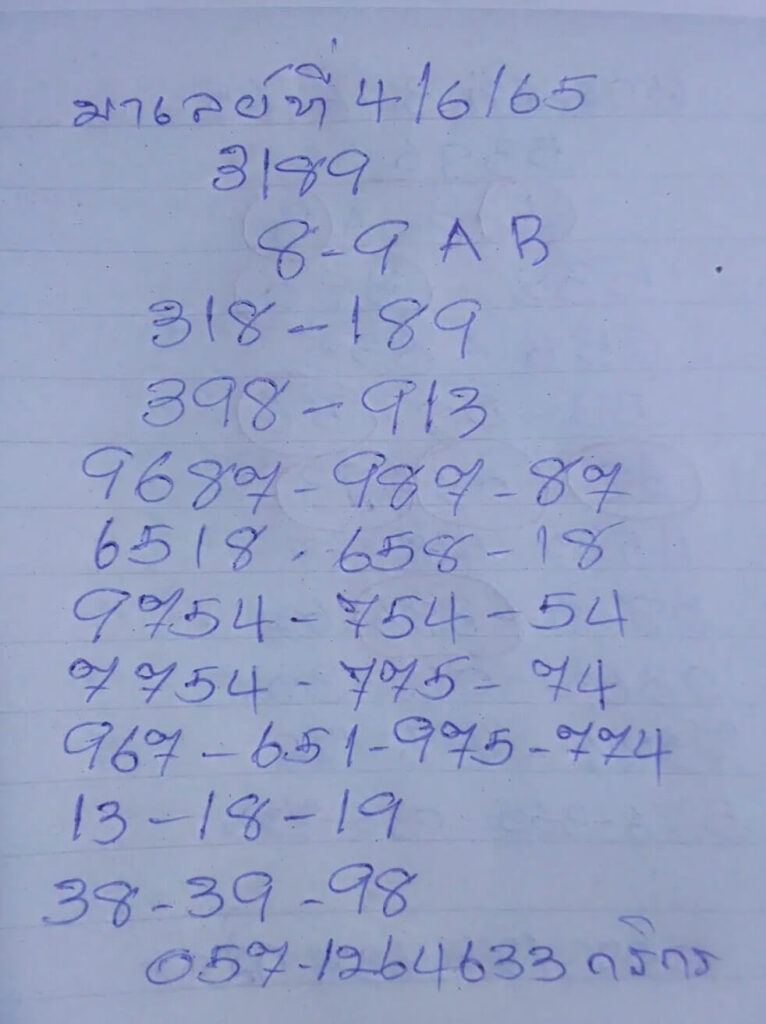 มาเลย์ที่ 4/6/65
3189
8-9 A B
318-189
398-913
9687-987-87
6518-658-18
9754-754-54
7754-775-74
967-651-975-774
13-18-19
38-39-98
057-1264633